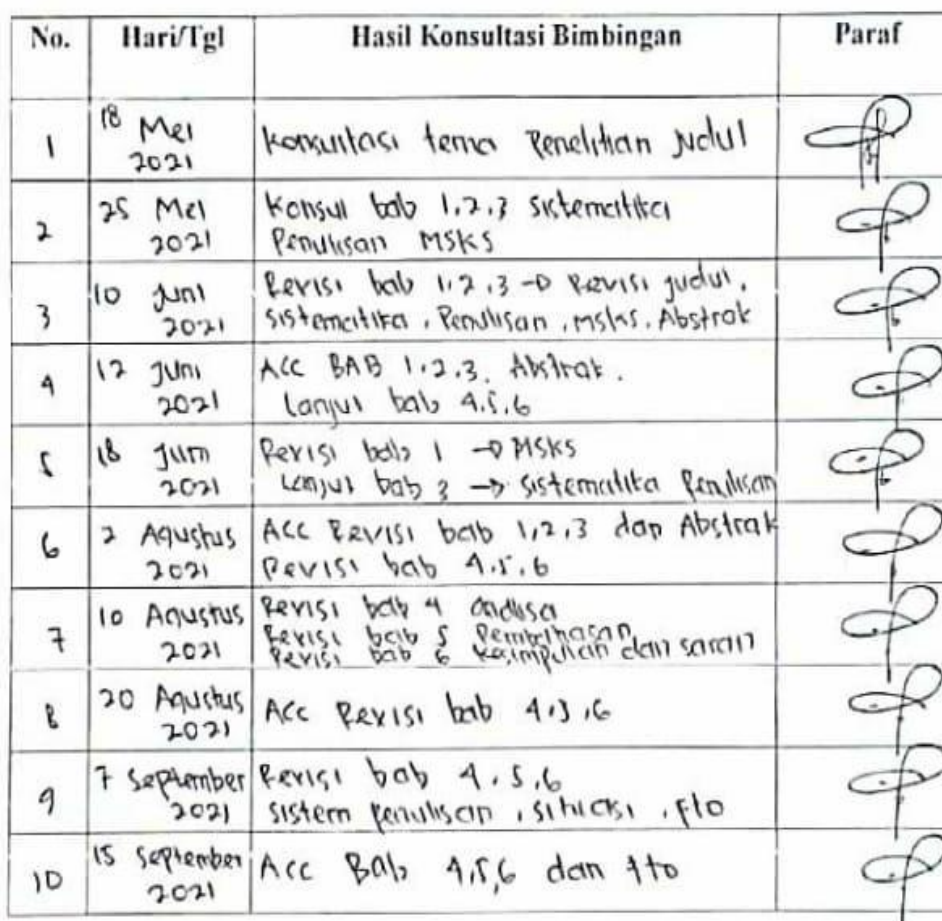 No. Hari/Tgl Hasil Konsultasi Bimbingan Paraf
1 18 Mei 2021 Konsultasi tema Penelitian Judul
2 25 Mei 2021 Konsul bab 1,2,3 sistematika
Penulisan MSKS
3 10 Juni 2021 Revisi bab 1,2,3 → Revisi judul,
sistematika, Penulisan, MSKS, Abstrak
4 12 Juni 2021 Acc BAB 1.2.3. Abstrak.
Lanjut bab 4.5.6
5 18 Juni 2021 Revisi bab 1 → MSKS
Lanjut bab 3 → sistematika Penulisan
6 2 Agustus 2021 Acc Revisi bab 1,2,3 dan Abstrak
Revisi bab 4.5.6
7 10 Agustus 2021 Revisi bab 4 analisa
Revisi bab 5 Pembahasan
Revisi bab 6 kesimpulan dan saran
8 20 Agustus 2021 Acc Revisi bab 4,5,6
9 7 September 2021 Revisi bab 4.5.6
sistem penulisan, , fto
10 15 September 2021 Acc Bab 4,5,6 dan fto